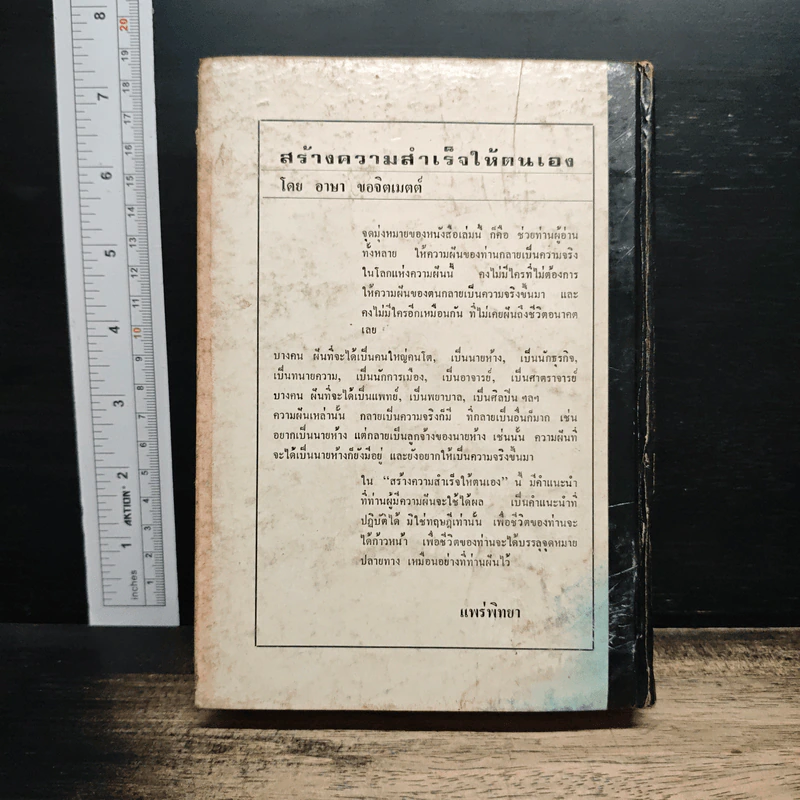 สร้างความสำเร็จให้ตนเอง
โดย อาษา ขอจิตเมตต์
จุดมุ่งหมายของหนังสือเล่มนี้ ก็คือ ช่วยท่านผู้อ่าน
ทั้งหลาย ให้ความฝันของท่านกลายเป็นความจริง
ในโลกแห่งความฝันนี้ คงไม่มีใครที่ไม่ต้องการ
ให้ความฝันของตนกลายเป็นความจริงขึ้นมา และ
คงไม่มีใครอีกเหมือนกัน ที่ไม่เคยฝันถึงชีวิตอนาคต
เลย
บางคน ฝันที่จะได้เป็นคนใหญ่คนโต, เป็นนายห้าง, เป็นนักธุรกิจ,
เป็นทนายความ, เป็นนักการเมือง, เป็นอาจารย์, เป็นศาตราจารย์
บางคน ฝันที่จะได้เป็นแพทย์, เป็นพยาบาล, เป็นศิลปิน ฯลฯ
ความฝันเหล่านั้น กลายเป็นความจริงก็มี ที่กลายเป็นอื่นก็มาก เช่น
อยากเป็นนายห้าง แต่กลายเป็นลูกจ้างของนายห้าง เช่นนั้น ความฝันที่
จะได้เป็นนายห้างก็ยังมีอยู่ และยังอยากให้เป็นความจริงขึ้นมา
ใน "สร้างความสำเร็จให้ตนเอง" นี้ มีคำแนะนำ
ที่ท่านผู้มีความฝันจะใช้ได้ผล เป็นคำแนะนำที่
ปฏิบัติได้ มิใช่ทฤษฎีเท่านั้น เพื่อชีวิตของท่านจะ
ได้ก้าวหน้า เพื่อชีวิตของท่านจะได้บรรลุจุดหมาย
ปลายทาง เหมือนอย่างที่ท่านฝันไว้
แพร่พิทยา
8
7
6
5
4
3
2
1
inches
AKTION
20
19
18
17
16
15
14
13
12
11
10
9
8
7
6
5
4
3
2
1